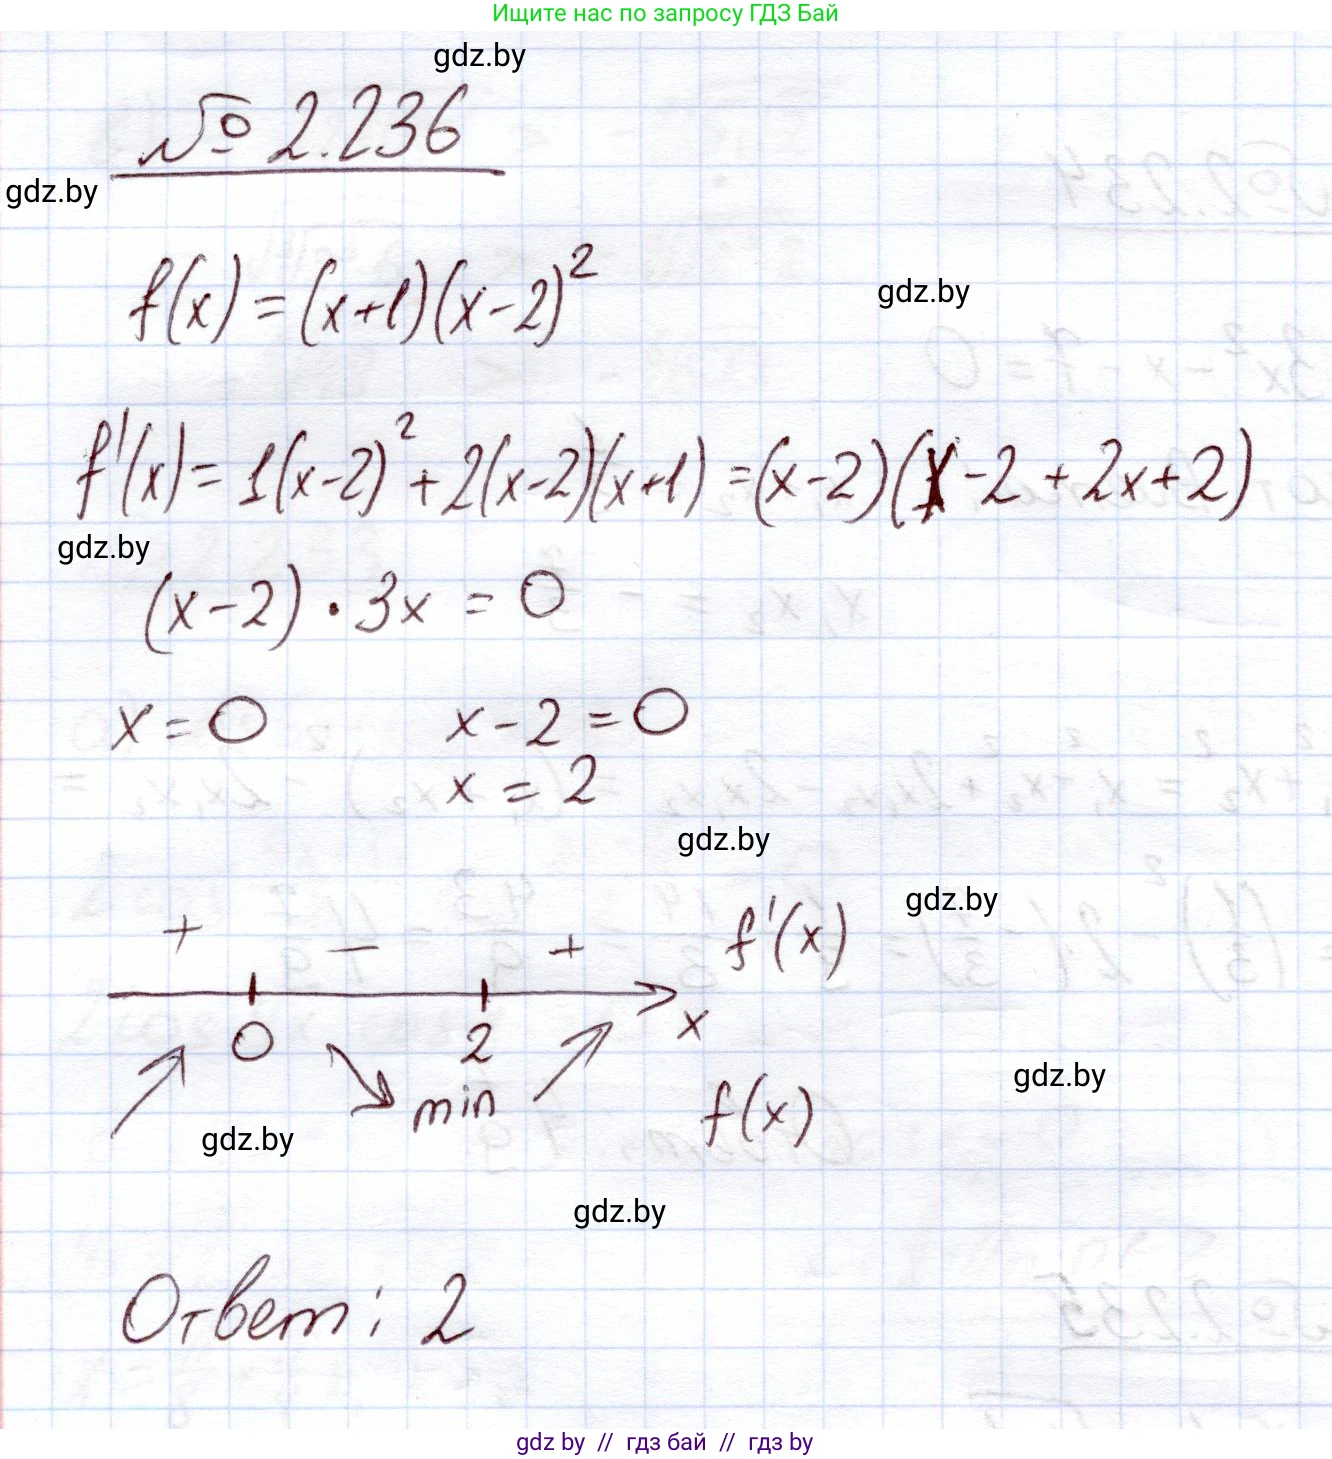 Ищите нас по запросу ГДЗ Бай
gdz.by
№ 2.236
gdz.by
f(x) = (x+1)(x-2)²
gdz.by
f'(x) = 1(x-2)² + 2(x-2)(x+1) = (x-2)(x-2+2x+2)
gdz.by
(x-2) · 3x = 0
x = 0 x-2 = 0
x = 2
gdz.by
gdz.by
+ − + f'(x)
0 2 x
gdz.by
min f(x)
gdz.by
gdz.by
Ответ: 2
gdz by // гдз бай // гдз by